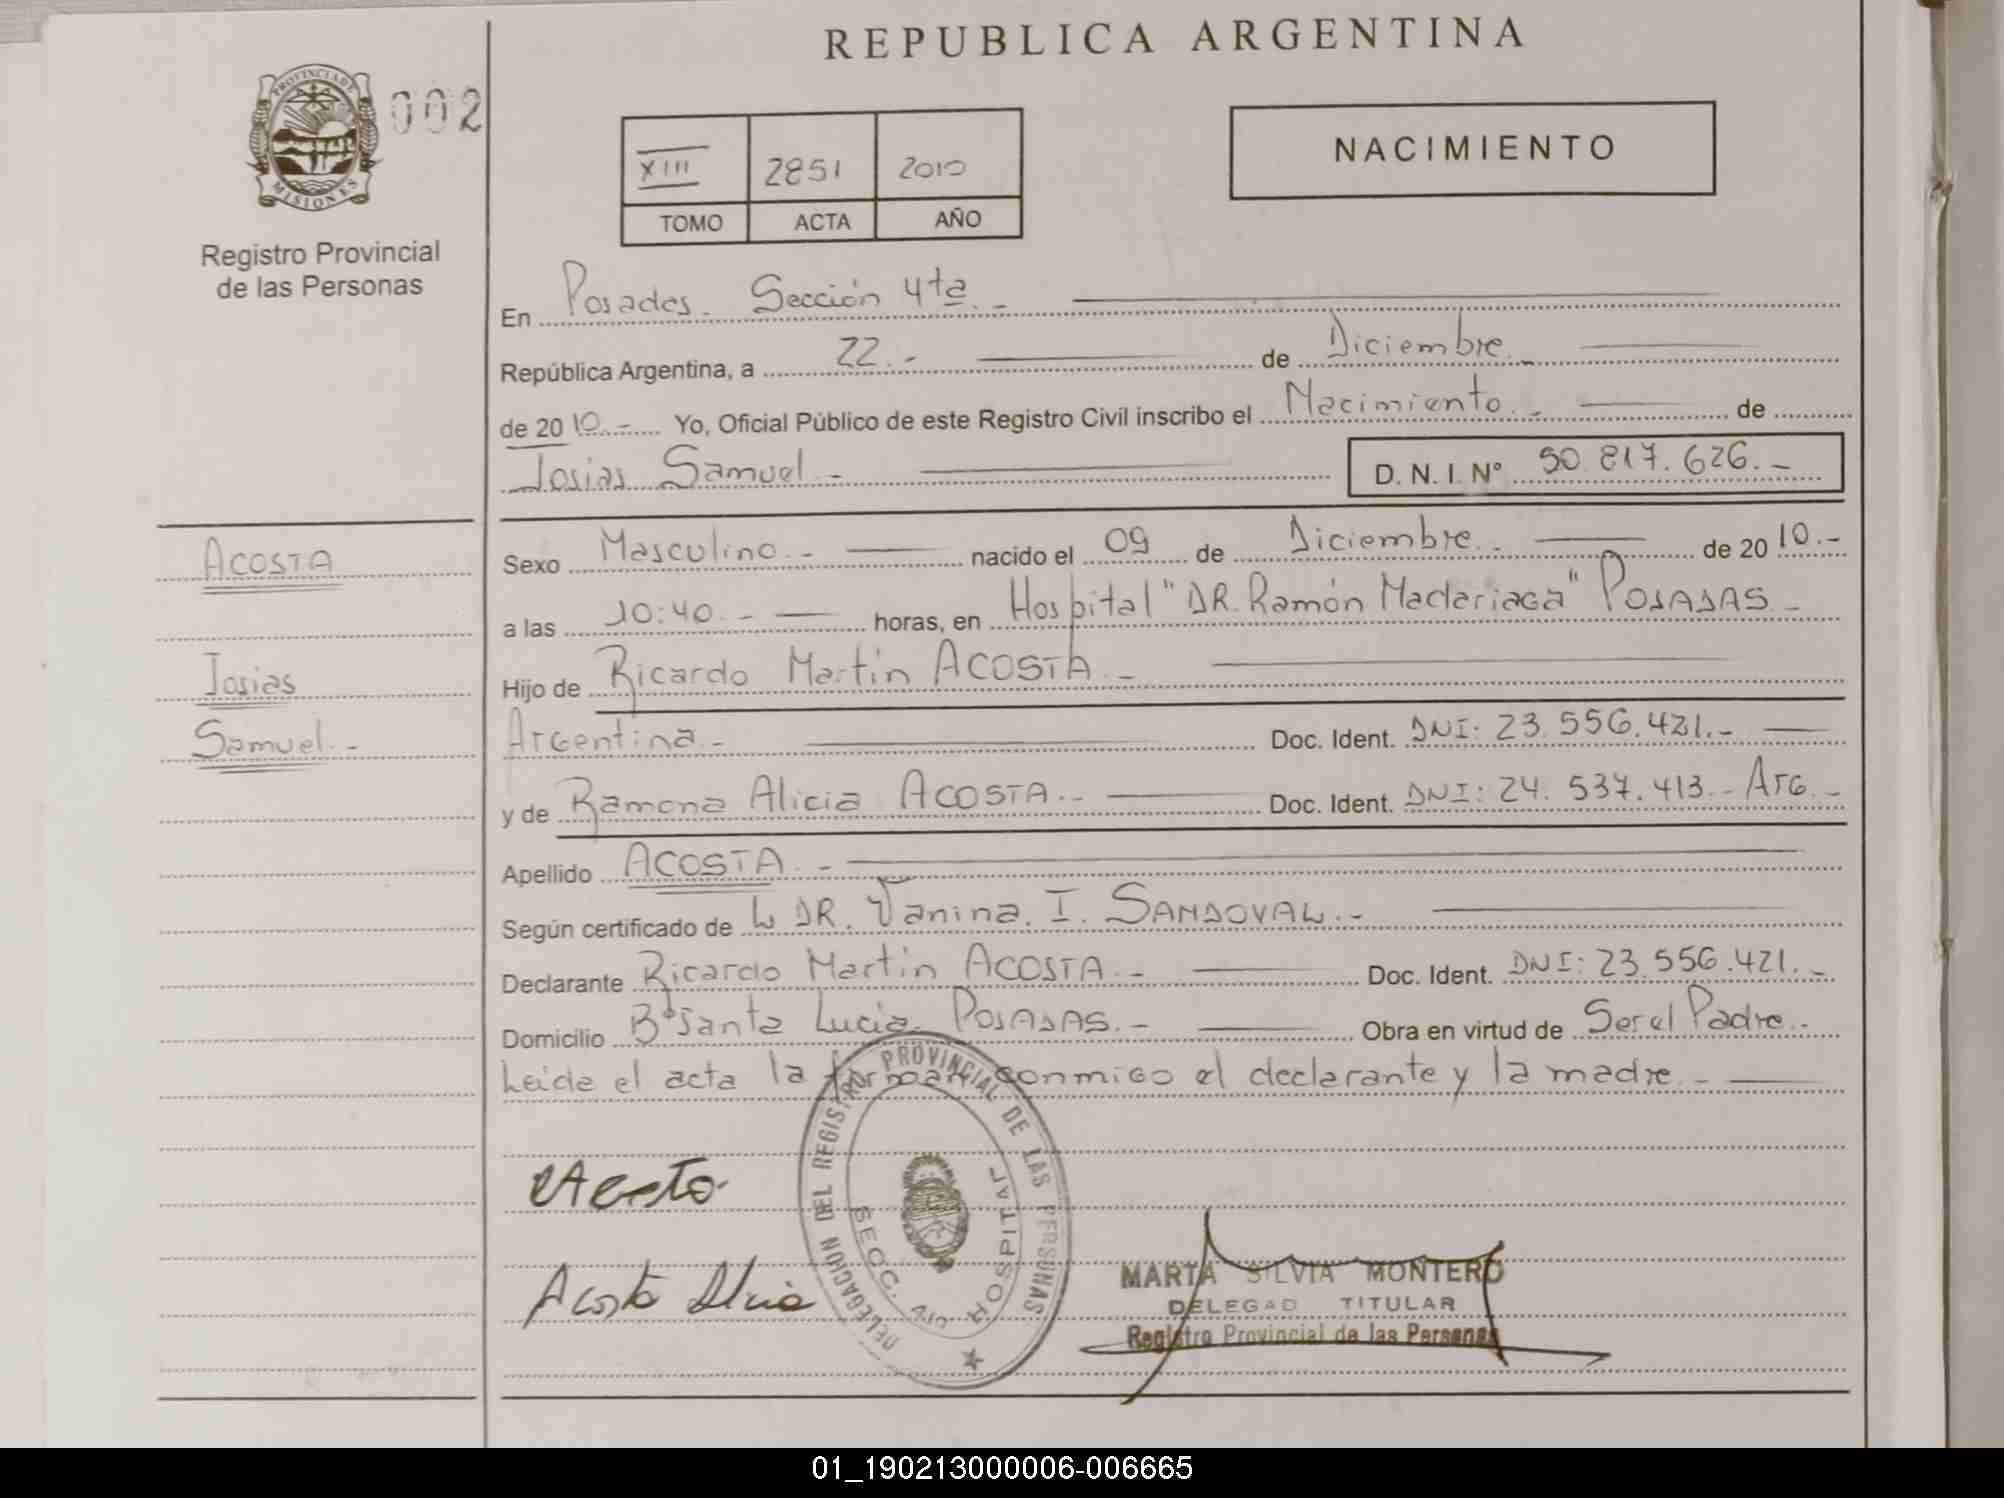 REPUBLICA ARGENTINA
PROVINCIA DE
MISIONES
002
Registro Provincial
de las Personas
XIII 2851 2010
TOMO ACTA AÑO
NACIMIENTO
En Posadas Sección 4ta.-
República Argentina, a 22.- de Diciembre.-
de 2010.- Yo, Oficial Público de este Registro Civil inscribo el Nacimiento.- de
Josias Samuel.- D. N. I. Nº 50.817.626.-
ACOSTA
Josias
Samuel.-
Sexo Masculino.- nacido el 09 de Diciembre.- de 2010.-
a las 10:40.- horas, en Hospital "DR. Ramón Madariaga" POSADAS.-
Hijo de Ricardo Martín ACOSTA.-
Argentina.- Doc. Ident. DNI: 23.556.421.-
y de Ramona Alicia ACOSTA.- Doc. Ident. DNI: 24.537.413.- Arg.-
Apellido ACOSTA.-
Según certificado de DR. Vanina. I. SANDOVAL.-
Declarante Ricardo Martín ACOSTA.- Doc. Ident. DNI: 23.556.421.-
Domicilio Bº Santa Lucia. POSADAS.- Obra en virtud de Ser el Padre.-
Leida el acta la firman conmigo el declarante y la madre.-
DELEGACION DEL REGISTRO PROVINCIAL DE LAS PERSONAS
SECC. HOSPITAL
Acosta Alicia
MARTA SILVIA MONTERO
DELEGAD TITULAR
Registro Provincial de las Personas
01_190213000006-006665